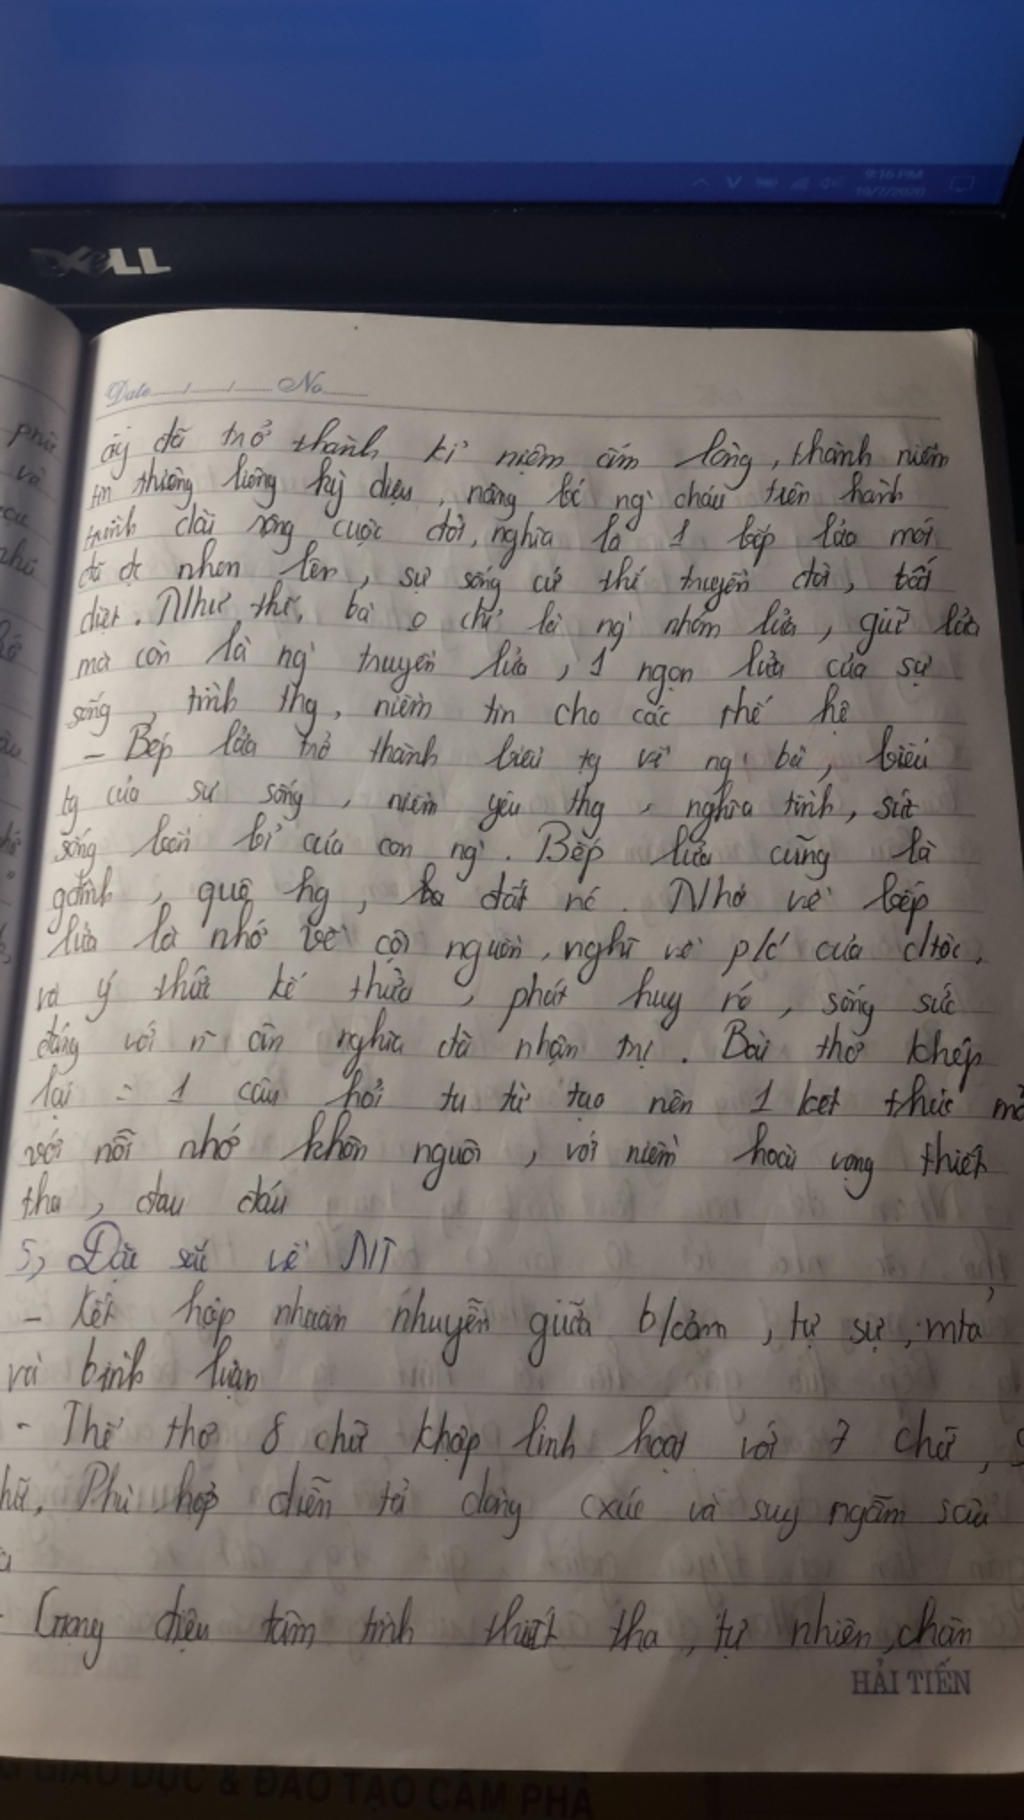 9:16 PM
19/7/2020
DELL
Date / / No
ấy đã trở thành kỉ niệm ấm lòng, thành niềm
tin thiêng liêng kỳ diệu, nâng bc ng' cháu trên hành
trình dài rộng cuộc đời, nghĩa là 1 bếp lửa mới
đã đc nhen lên, sự sống cứ thế truyền đời, bất
diệt. Như thế, bà o chỉ là ng' nhóm lửa, giữ lửa
mà còn là ng' truyền lửa, 1 ngọn lửa của sự
sống, tình thg, niềm tin cho các thế hệ
- Bếp lửa trở thành biểu tg về ng' bà, biểu
tg của sự sống, niềm yêu thg, nghĩa tình, sức
sống bền bỉ của con ng'. Bếp lửa cũng là
gđình, quê hg, đất nc. Nhớ về bếp
lửa là nhớ về cội nguồn, nghĩ về p/c' của dtộc,
và ý thức kế thừa, phát huy nó, sống sức
đáng với n~ ân nghĩa đã nhận mị. Bài thơ khép
lại = 1 câu hỏi tu từ tạo nên 1 kết thúc mở
với nỗi nhớ khôn nguôi, với niềm hoài vọng thiết
tha, đau đáu
5, Đặc sắc về NT
- Kết hợp nhuần nhuyễn giữa b/cảm, tự sự, mtả
và bình luận
- Thể thơ 8 chữ khợp linh hoạt với 7 chữ,
Phù hợp diễn tả dòng cxúc và suy ngẫm sâu
- Giọng điệu tâm tình thiết tha, tự nhiên, chân
HẢI TIẾN
GIÁO DỤC & ĐÀO TẠO CẨM PHẢ